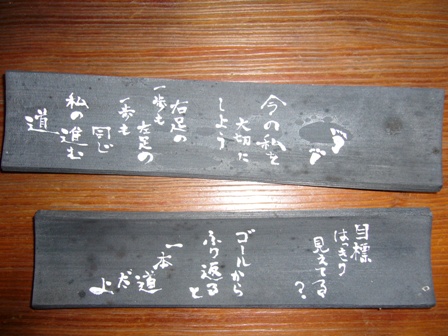 今の私を
大切に
しよう
右足の
一歩も
左足の
一歩も
同じ
私の進む
道
目標
はっきり
見えてる
?
ゴールから
ふり返る
と
一本
道
だ
よ